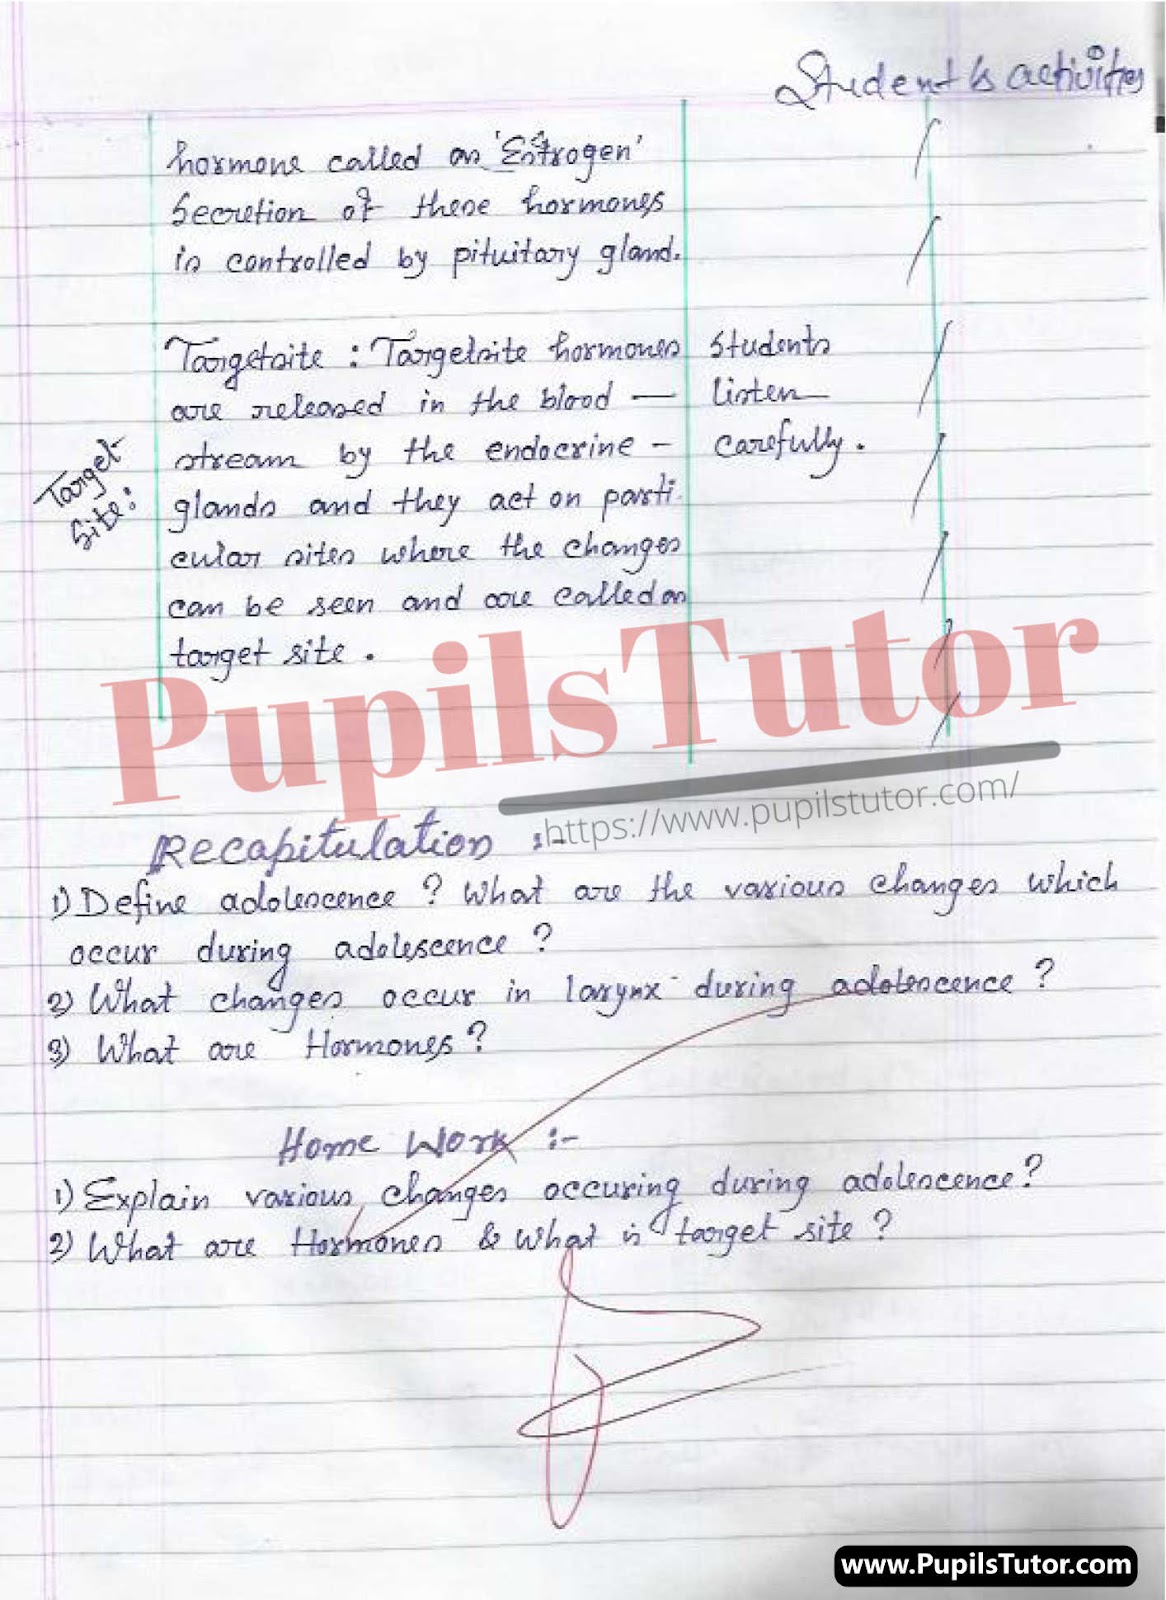 Student's activities
hormone called as 'Estrogen'
Secretion of these hormones
is controlled by pituitary gland.
Targetsite : Targetsite hormones
are released in the blood —
stream by the endocrine -
glands and they act on parti
cular sites where the changes
can be seen and are called as
target site .
Students
listen
carefully .
Target
Site :
PupilsTutor
https://www.pupilstutor.com/
Recapitulation :-
1) Define adolescence ? What are the various changes which
occur during adolescence ?
2) What changes occur in larynx during adolescence ?
3) What are Hormones ?
Home Work :-
1) Explain various changes occuring during adolescence ?
2) What are Hormones & What is target site ?
www.PupilsTutor.com